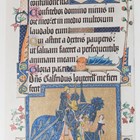 Confitebor domino nimis in
ore meo et in medio multorum
laudabo eum
Qui astitit a dextris pauperis
ut saluam faceret a persequentib
animam meam
Gloria patri
Dns Galfridus louterell me fieri fecit